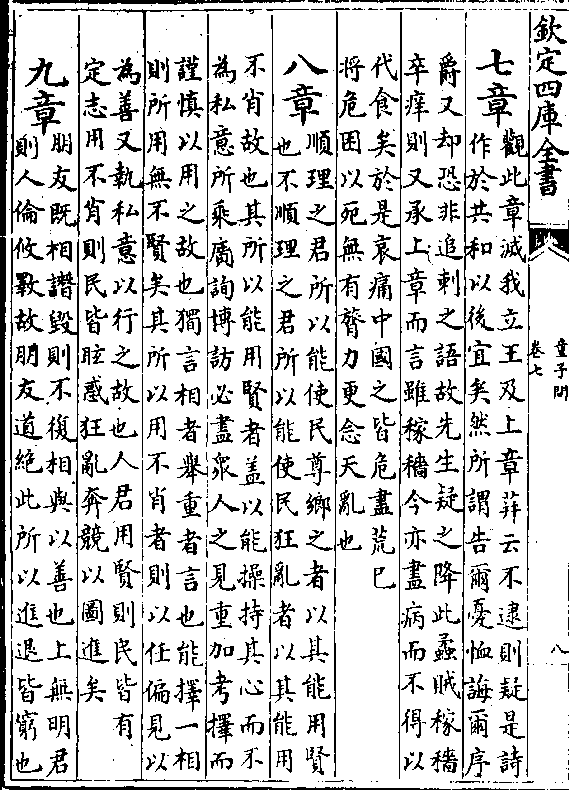 欽定四庫全書
童子問
卷七
八
七章觀此章滅我立王及上章荓云不逮則疑是詩
作於共和以後宜矣然所謂告爾憂恤誨爾序
爵又却恐非追刺之語故先生疑之降此蟊賊稼穡
卒痒則又承上章而言雖稼穡今亦盡病而不得以
代食矣於是哀痛中國之皆危盡荒已
將危困以死無有膂力更念天亂也
八章順理之君所以能使民尊嚮之者以其能用賢
也不順理之君所以能使民狂亂者以其能用
不肖故也其所以能用賢者盖以能操持其心而不
為私意所乘廣詢博訪必盡衆人之見重加考擇而
謹慎以用之故也獨言相者舉重者言也能擇一相
則所用無不賢矣其所以用不肖者則以任偏見以
為善又執私意以行之故也人君用賢則民皆有
定志用不肖則民皆眩惑狂亂奔競以圖進矣
九章朋友既相譖毀則不復相與以善也上無明君
則人倫攸斁故朋友道絶此所以進退皆窮也